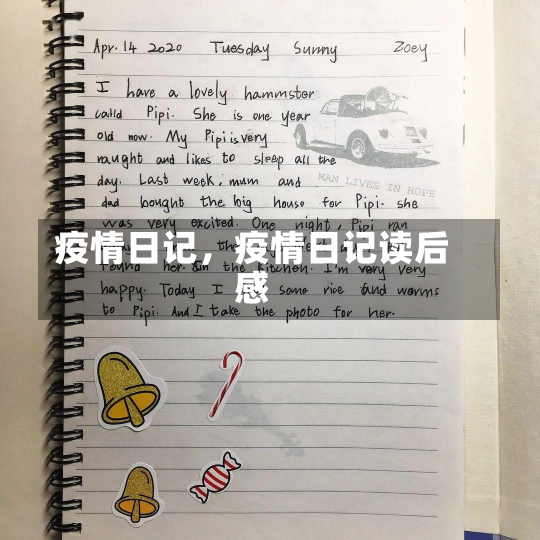 Apr. 14 2020 Tuesday Sunny Zoey
I have a lovely hammster
calld Pipi. She is one year
old now. My Pipi is very
naught and likes to sleep all the
day. Last week, mum and
MAN LIVES IN HOPE
dad bought the big house for Pipi. she
was very excited. One night, Pipi ran
疫情日记，疫情日记读后
感
found her in the kitchen. I'm very very
happy. Today I some rice and worms
to Pipi. And I take the photo for her.